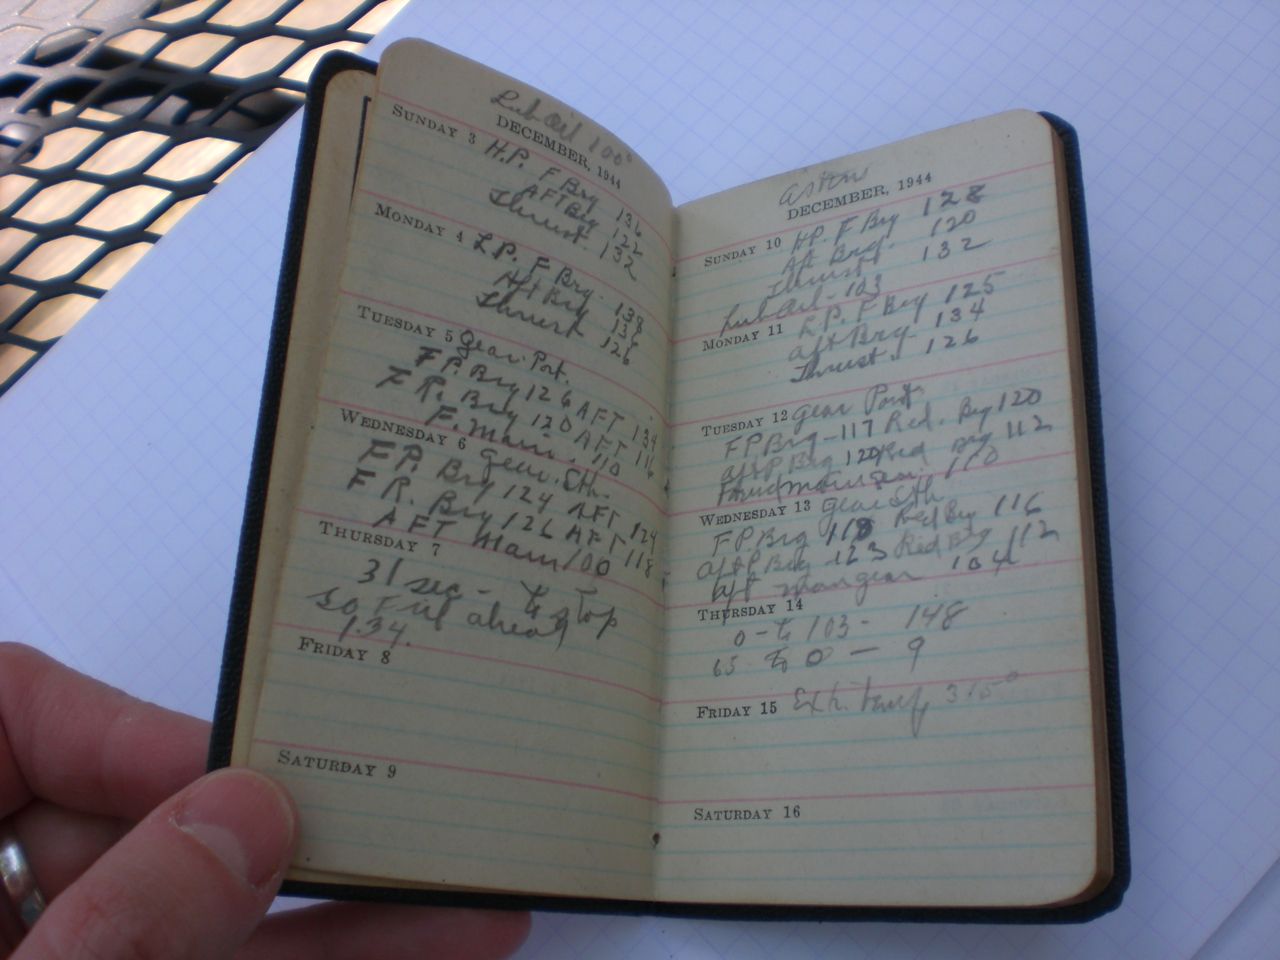 Lub Oil 100°
DECEMBER, 1944
SUNDAY 3 H.P. F Brg 136
AFT Brg 122
Thrust 132
MONDAY 4 L.P. F Brg. 138
Aft Brg 136
Thrust 126
TUESDAY 5 Gear Port.
F P. Brg 126 AFT 134
F R. Brg 120 AFT 116
F. Main. 110
WEDNESDAY 6 Gear. Stb.
F P. Brg 124 AFT 124
F R. Brg 126 AFT 118
AFT Main 100
THURSDAY 7
31 sec - to stop
50 Full ahead
1.34.
FRIDAY 8
SATURDAY 9
Astern
DECEMBER, 1944
SUNDAY 10 H.P. F Brg 128
Aft Brg. 120
Thrust 132
Lub Oil - 103
MONDAY 11 L.P. F Brg 125
Aft Brg 134
Thrust. 126
TUESDAY 12 Gear Port
F P Brg - 117 Red. Brg 120
Aft P Brg 120 Red Brg 112
main 110
WEDNESDAY 13 Gear Stb
F P. Brg 118 Red Brg 116
Aft P Brg 123 Red Brg 112
Aft main gear 104
THURSDAY 14
0 - to 103 - 148
65 to 0 - 9
FRIDAY 15 Exh. temp 315°
SATURDAY 16